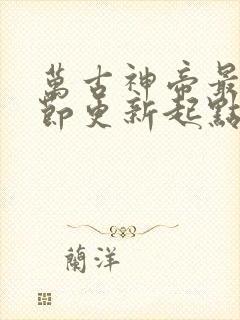 萬古神帝最
節更新起點
蘭洋